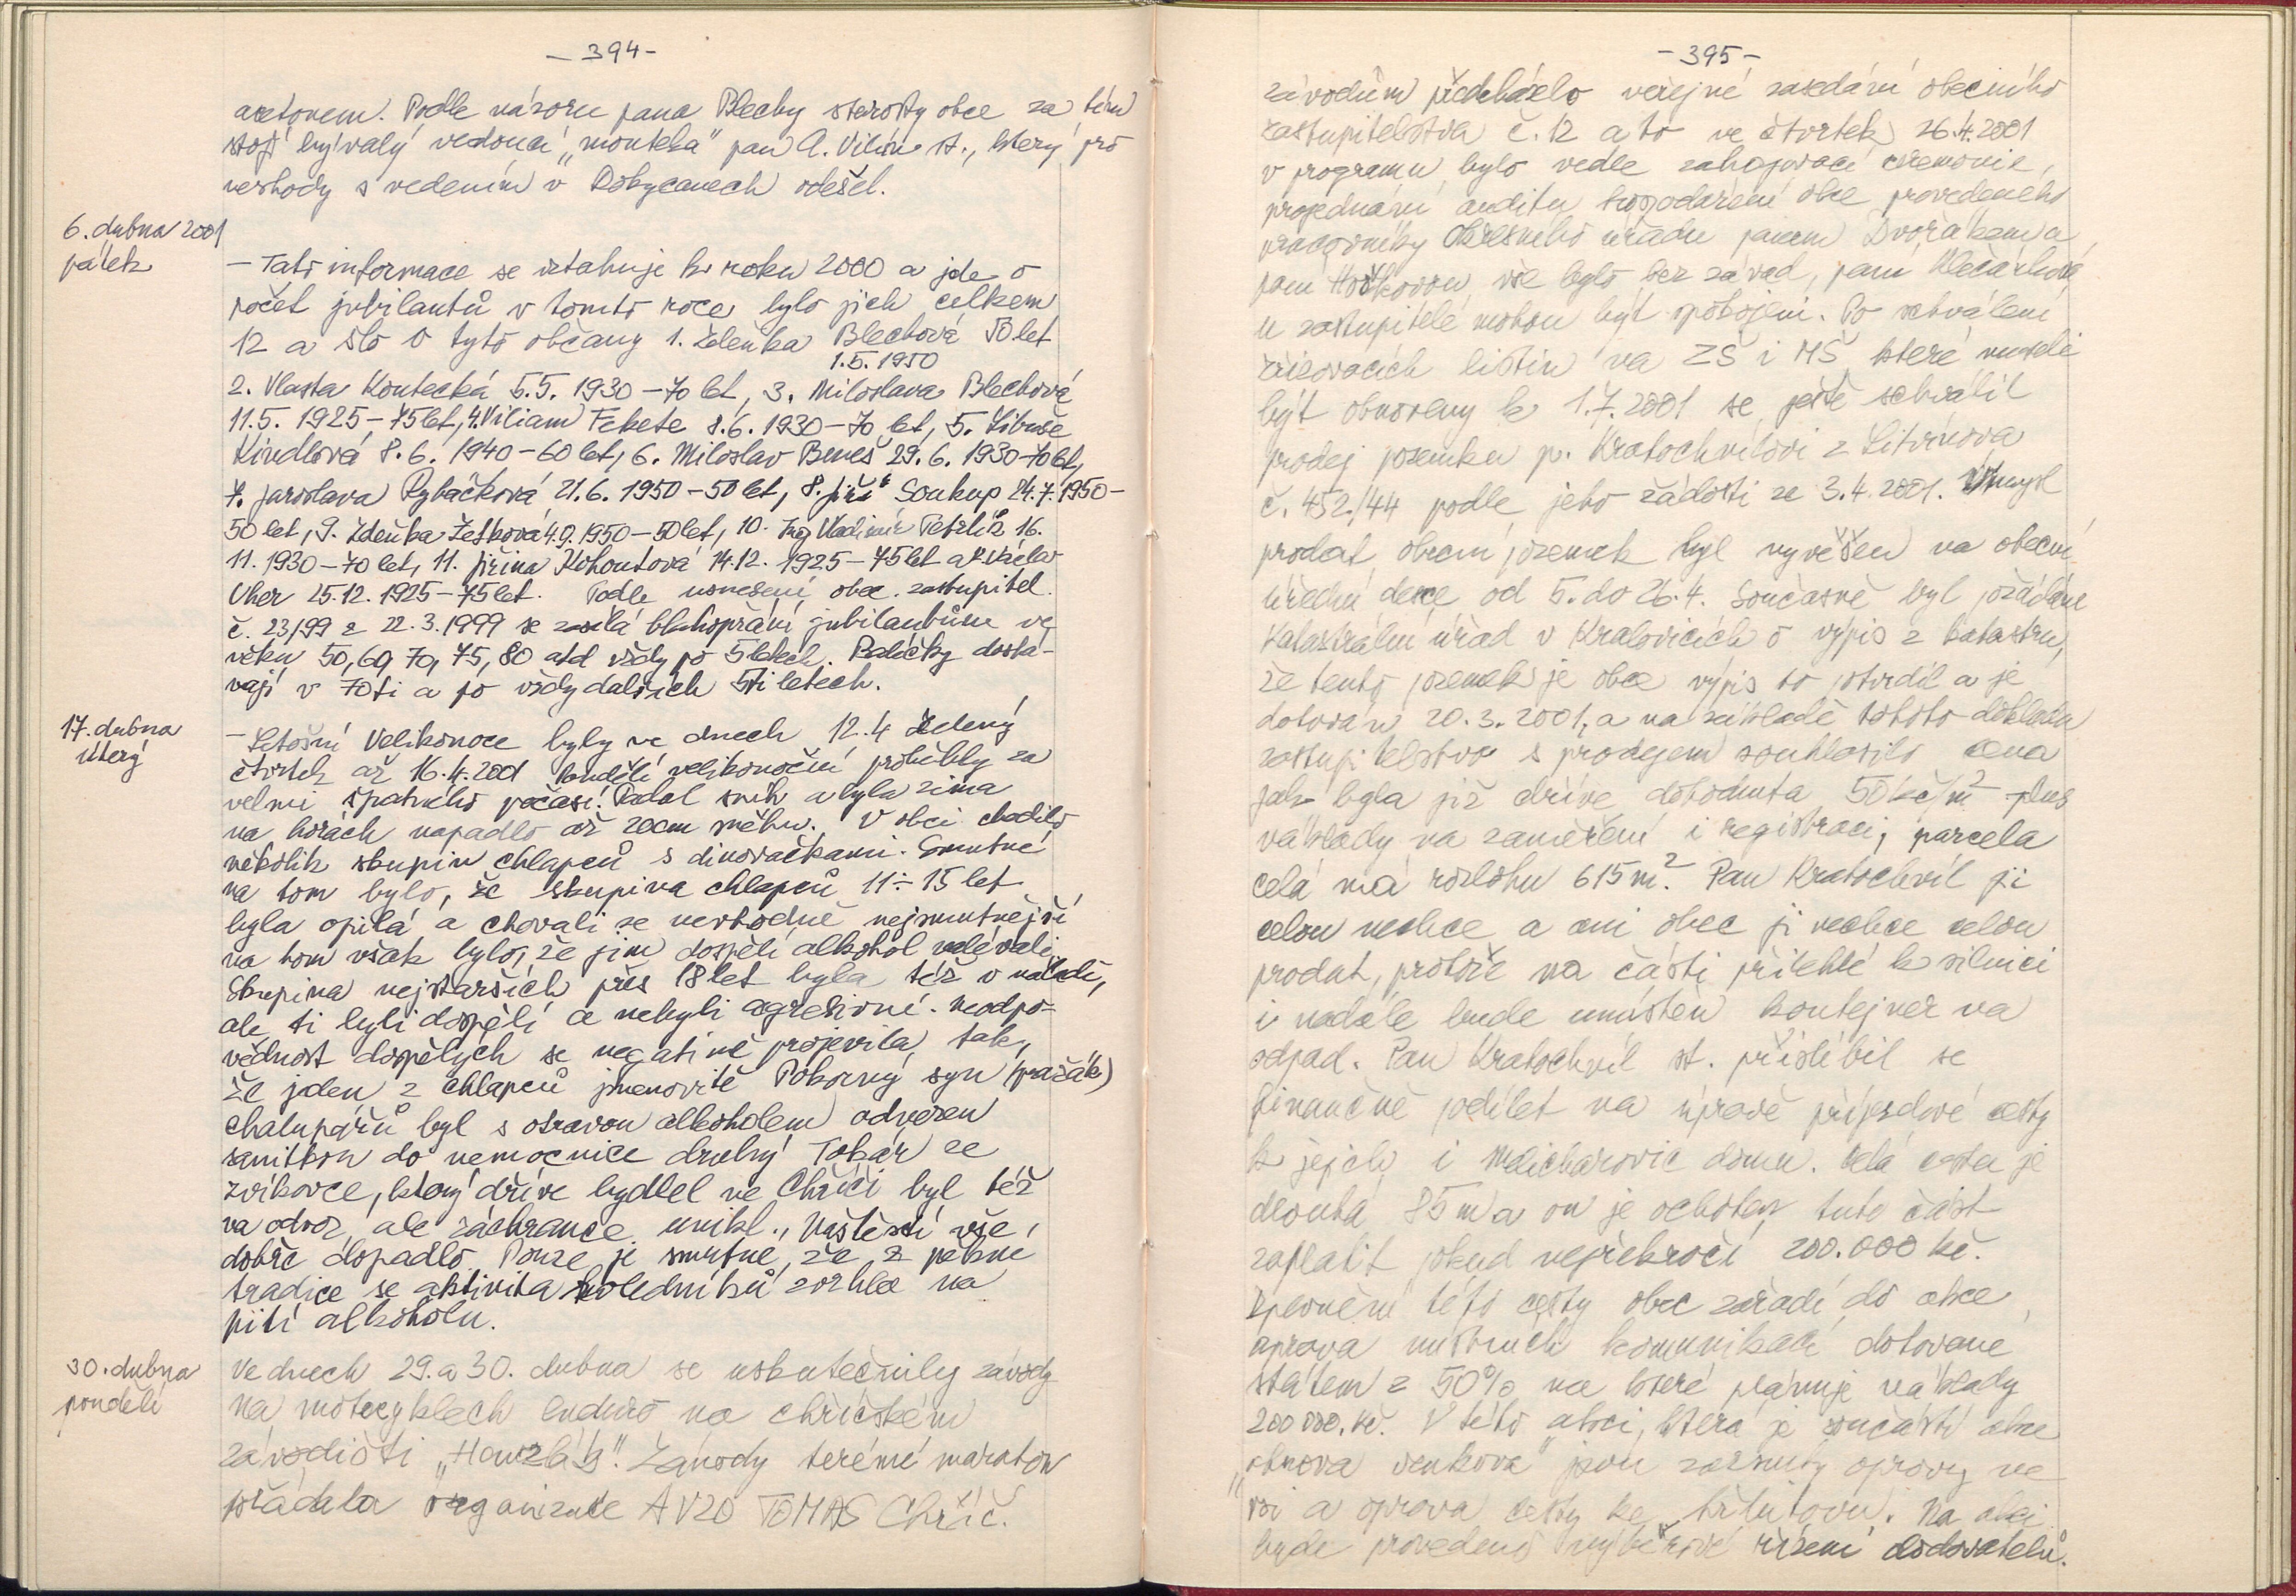 - 394 -
acetonem. Podle názoru pana Blechy starosty obce za tím
stojí bývalý vedoucí "monteka" pan A. Vilím st., který pro
neshody s vedením v Dobřanech odešel.
6. dubna 2001
pátek
- Tato informace se vztahuje k roku 2000 a jde o
počet jubilantů v tomto roce bylo jich celkem
12 a šlo o tyto občany 1. Zdeňka Blechová 50 let
1.5.1950
2. Vlasta Koutecká 5.5. 1930 - 70 let, 3. Miloslava Blechová
11.5. 1925 - 75 let, 4. Viliam Fekete 8.6. 1930 - 70 let, 5. Libuše
Kindlová 8.6. 1940 - 60 let, 6. Miloslav Beneš 29.6. 1930 - 70 let,
7. Jaroslava Rybáčková 21.6. 1950 - 50 let, 8. Jiří Soukup 24.7. 1950 -
50 let, 9. Zdeňka 4.9. 1950 - 50 let, 10. Ing Vladimír 16.
11. 1930 - 70 let, 11. Jiřina Kohoutová 14.12. 1925 - 75 let a 12. Václav
Uher 25.12. 1925 - 75 let. Podle usnesení obec. zastupitel.
č. 23/99 z 22.3.1999 se zasílá blahopřání jubilantům ve
věku 50, 60, 70, 75, 80 atd vždy po 5 letech. Balíčky dostá-
vají v 70ti a po vždy dalších 5ti letech.
17. dubna
úterý
- Letošní Velikonoce byly ve dnech 12.4 zelený
čtvrtek až 16.4.2001 pondělí velikonoční proběhly za
velmi špatného počasí. Padal sníh a byla zima
na horách napadlo až 20cm sněhu. V obci chodilo
několik skupin chlapců s dinovačkami. Smutné
na tom bylo, že skupina chlapců 11 ÷ 15 let
byla opilá a chovali se nevhodně nejsmutnější
na tom však bylo, že jim dospělí alkohol nalévali.
Skupina nejstarších přes 18 let byla též v náladě,
ale ti byli dospělí a nebyli agresivní. Neodpo-
vědnost dospělých se negativně projevila tak,
že jeden z chlapců jmenovitě Pokorný syn (pražák)
chalupářů byl s otravou alkoholem odvezen
sanitkou do nemocnice druhý Tokár ze
Zvíkovce, který dříve bydlel ve Chříči byl též
na odvoz, ale záchrance unikl., Naštěstí vše
dobře dopadlo. Pouze je smutné, že z pěkné
tradice se aktivita koledníků zvrhla na
pití alkoholu.
30. dubna
pondělí
Ve dnech 29. a 30. dubna se uskutečnily závody
na motocyklech enduro na chříčském
závodišti "Hamrlák". Závody terénní maraton
pořádala organizace AVZO TOMAS Chříč.
- 395 -
závodům předcházelo veřejné zasedání obecního
zastupitelstva č. 12 a to ve čtvrtek 26.4.2001
v programu bylo vedle zahajovací ceremonie,
projednání auditu hospodaření obce provedeného
pracovníky Okresního úřadu panem Dvořákem a
paní vše bylo bez závad, paní
a zastupitelé mohou být spokojeni. Po schválení
zřizovacích listin na ZŠ i MŠ které musely
být obnoveny k 1.7.2001 se ještě schválil
prodej pozemku p. Kratochvílovi z Litvínova
č. 452/44 podle jeho žádosti ze 3.4.2001. Úmysl
prodat obecní pozemek byl vyvěšen na obecní
úřední desce od 5. do 26.4. Současně byl požádán
Katastrální úřad v Kralovicích o výpis z katastru,
že tento pozemek je obce výpis to potvrdil a je
datován 20.3.2001, a na základě tohoto dokladu
zastupitelstvo s prodejem souhlasilo cena
jak byla již dříve dohodnuta 50 kč/m² plus
náklady na zaměření i registraci, parcela
celá má rozlohu 615 m². Pan Kratochvíl ji
celou nechce a ani obec ji nechce celou
prodat, protože na části přilehlé k silnici
i nadále bude umístěn kontejner na
odpad. Pan Kratochvíl st. přislíbil se
finančně podílet na úpravě příjezdové cesty
k jejich i Melicharovic domu. Celá cesta je
dlouhá 85 m a on je ochoten tuto část
zaplatit pokud nepřekročí 200.000 kč.
Zpevnění této cesty obec zařadí do akce
oprava místních komunikací dotované
státem z 50% na které plánuje náklady
200 000.kč. V této akci, která je součástí akce
"obnova venkova" jsou zahrnuty opravy ve
vsi a oprava cesty ke hřbitovu. Na akci
bude provedeno výběrové řízení dodavatelů.